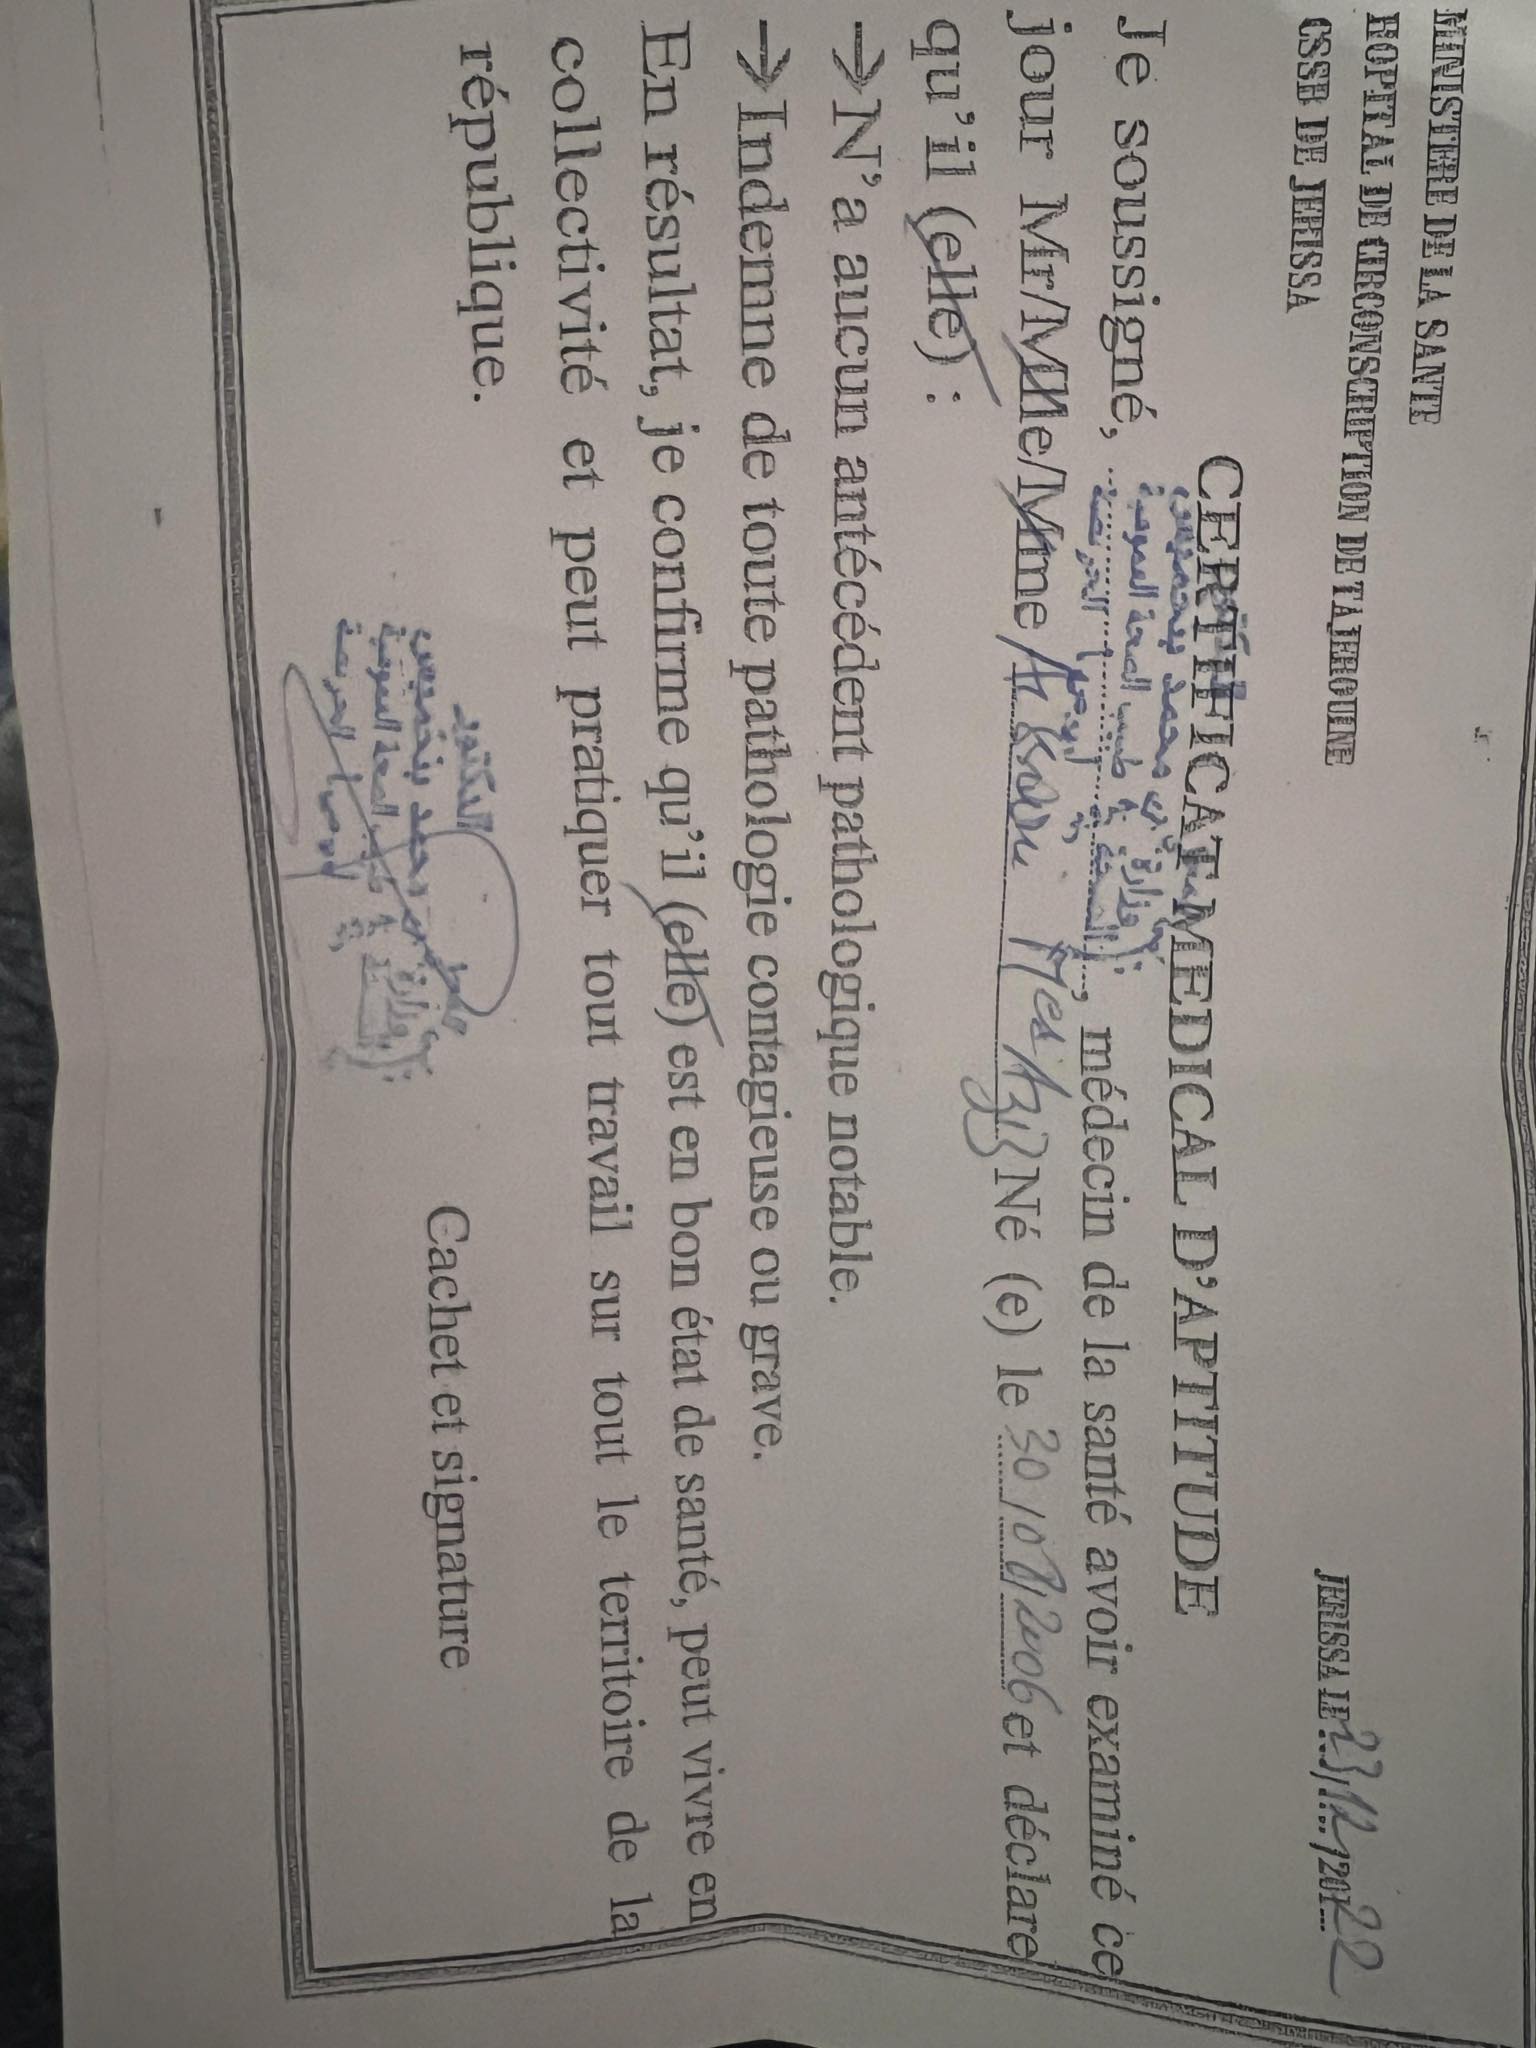 MINISTERE DE LA SANTE
HOPITAL DE CIRCONSCRIPTION DE TAJEROUINE
CSSB DE JERISSA
JERISSA LE 23/12/2022
CERTIFICAT MEDICAL D'APTITUDE
Je soussigné, ..., médecin de la santé avoir examiné ce
jour Mr/Mlle/Mme Né (e) le 30/08/2006 et déclare
qu'il (elle) :
→N'a aucun antécédent pathologique notable.
→Indemne de toute pathologie contagieuse ou grave.
En résultat, je confirme qu'il (elle) est en bon état de santé, peut vivre en
collectivité et peut pratiquer tout travail sur tout le territoire de la
république.
Cachet et signature
الدكتور
محمد بنخميس